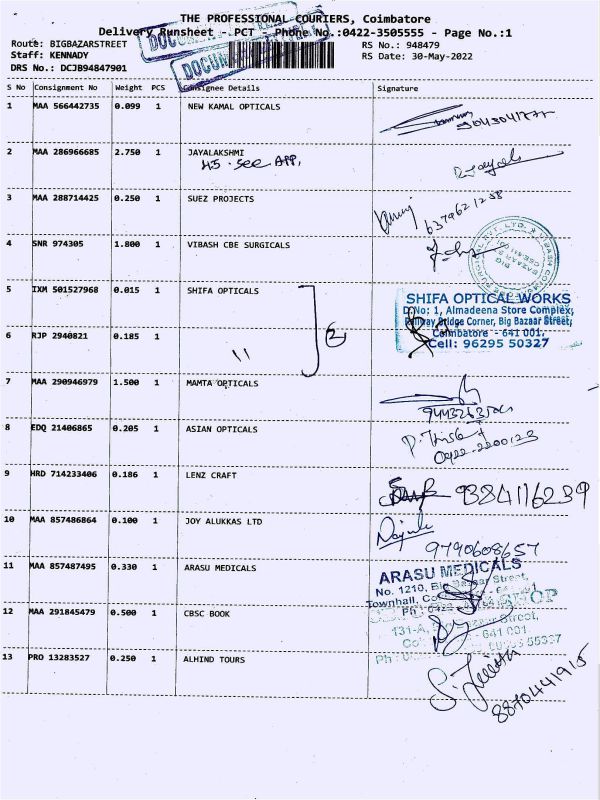 THE PROFESSIONAL COURIERS, Coimbatore
Delivery Runsheet - PCT - Phone No.:0422-3505555 - Page No.:1
Route: BIGBAZARSTREET RS No.: 948479
Staff: KENNADY RS Date: 30-May-2022
DRS No.: DCJB94847901
S No Consignment No Weight PCS Consignee Details Signature
1 MAA 566442735 0.099 1 NEW KAMAL OPTICALS
2 MAA 286966685 2.750 1 JAYALAKSHMI
3 MAA 288714425 0.250 1 SUEZ PROJECTS
6379621258
4 SNR 974305 1.800 1 VIBASH CBE SURGICALS
5 IXM 501527968 0.015 1 SHIFA OPTICALS
SHIFA OPTICAL WORKS
D.No: 1, Almadeena Store Complex,
Railway Bridge Corner, Big Bazaar Street,
Coimbatore - 641 001.
Cell: 96295 50327
6 RJP 2940821 0.185 1 " 2
7 MAA 290946979 1.500 1 MAMTA OPTICALS
8 EDQ 21406865 0.205 1 ASIAN OPTICALS
9 HRD 714233406 0.186 1 LENZ CRAFT
9384116239
10 MAA 857486864 0.100 1 JOY ALUKKAS LTD
9790608657
11 MAA 857487495 0.330 1 ARASU MEDICALS
ARASU MEDICALS
No. 1210, Big Bazaar Street,
Townhall,
12 MAA 291845479 0.500 1 CBSC BOOK
13 PRO 13283527 0.250 1 ALHIND TOURS
8870441915